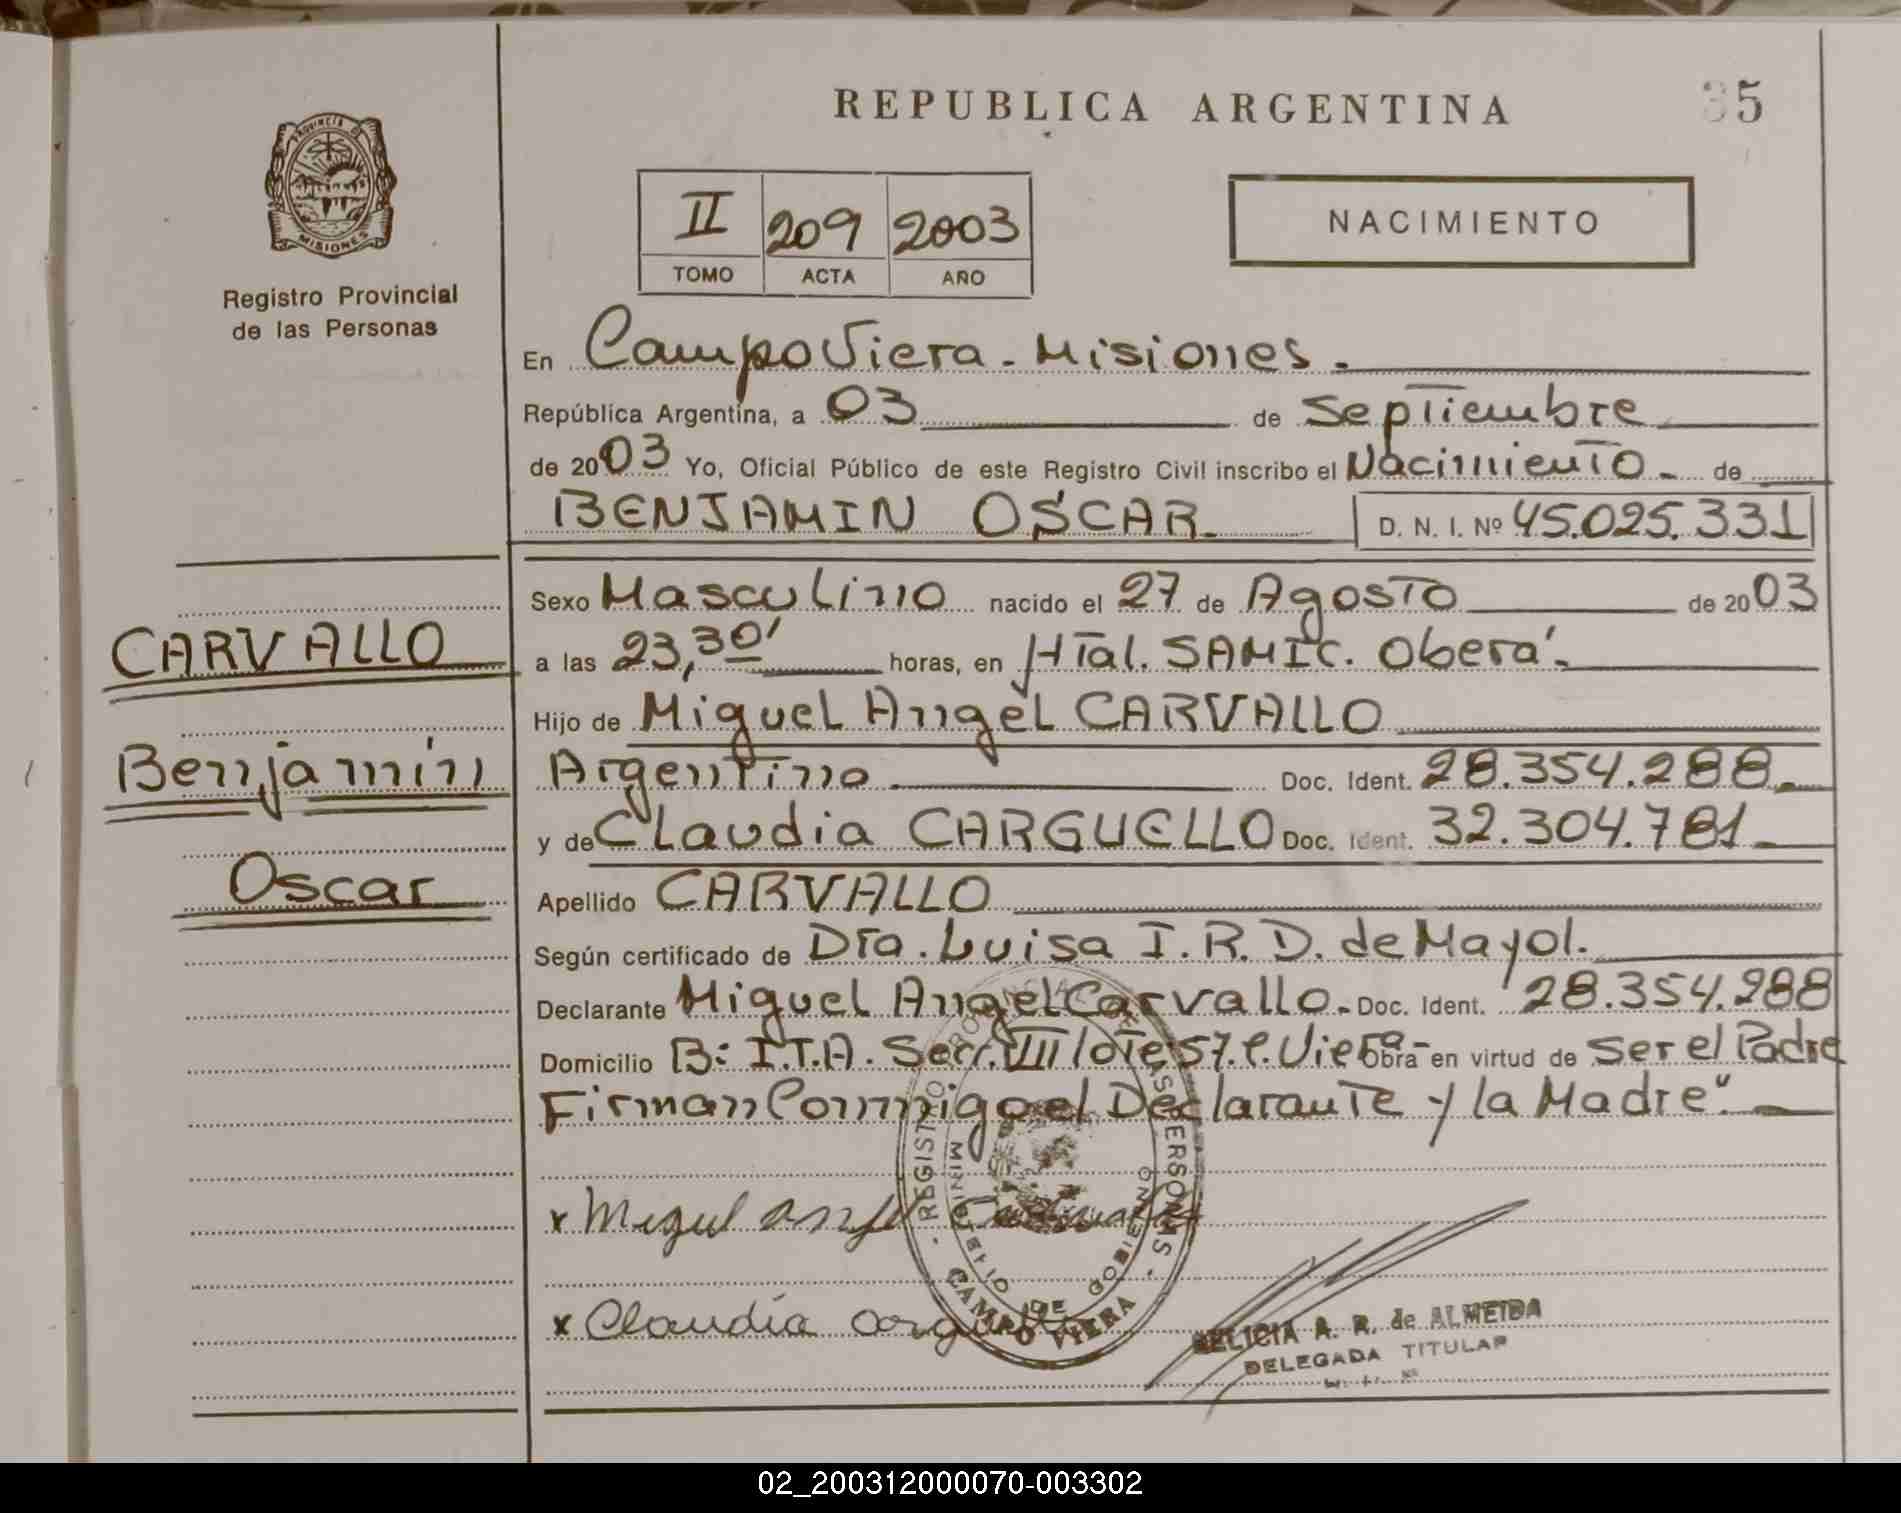 REPUBLICA ARGENTINA
35
PROVINCIA DE
MISIONES
Registro Provincial
de las Personas
II 209 2003
TOMO ACTA AÑO
NACIMIENTO
En Campo Viera - Misiones.
República Argentina, a 03 de Septiembre
de 2003 Yo, Oficial Público de este Registro Civil inscribo el Nacimiento de
BENJAMIN OSCAR D. N. I. Nº 45.025.331
Sexo Masculino nacido el 27 de Agosto de 2003
a las 23,30' horas, en Htal. SAMIC. Oberá.
Hijo de Miguel Angel CARVALLO
Argentino Doc. Ident. 28.354.288
y de Claudia CARGUELLO Doc. Ident. 32.304.781
Apellido CARVALLO
Según certificado de Dra. Luisa I. R. D. de Mayol.
Declarante Miguel Angel Carvallo. Doc. Ident. 28.354.288
Domicilio B: I.T.A. Secc. VIII lote 57. C. Viera Obra en virtud de ser el Padre
Firman Conmigo el Declarante y la Madre".
CARVALLO
Benjamín
Oscar
x Miguel Angel
x Claudia
REGISTRO PROVINCIAL DE LAS PERSONAS
MINISTERIO DE GOBIERNO
CAMPO VIERA
DELICIA A. R. de ALMEIDA
DELEGADA TITULAR
02_200312000070-003302